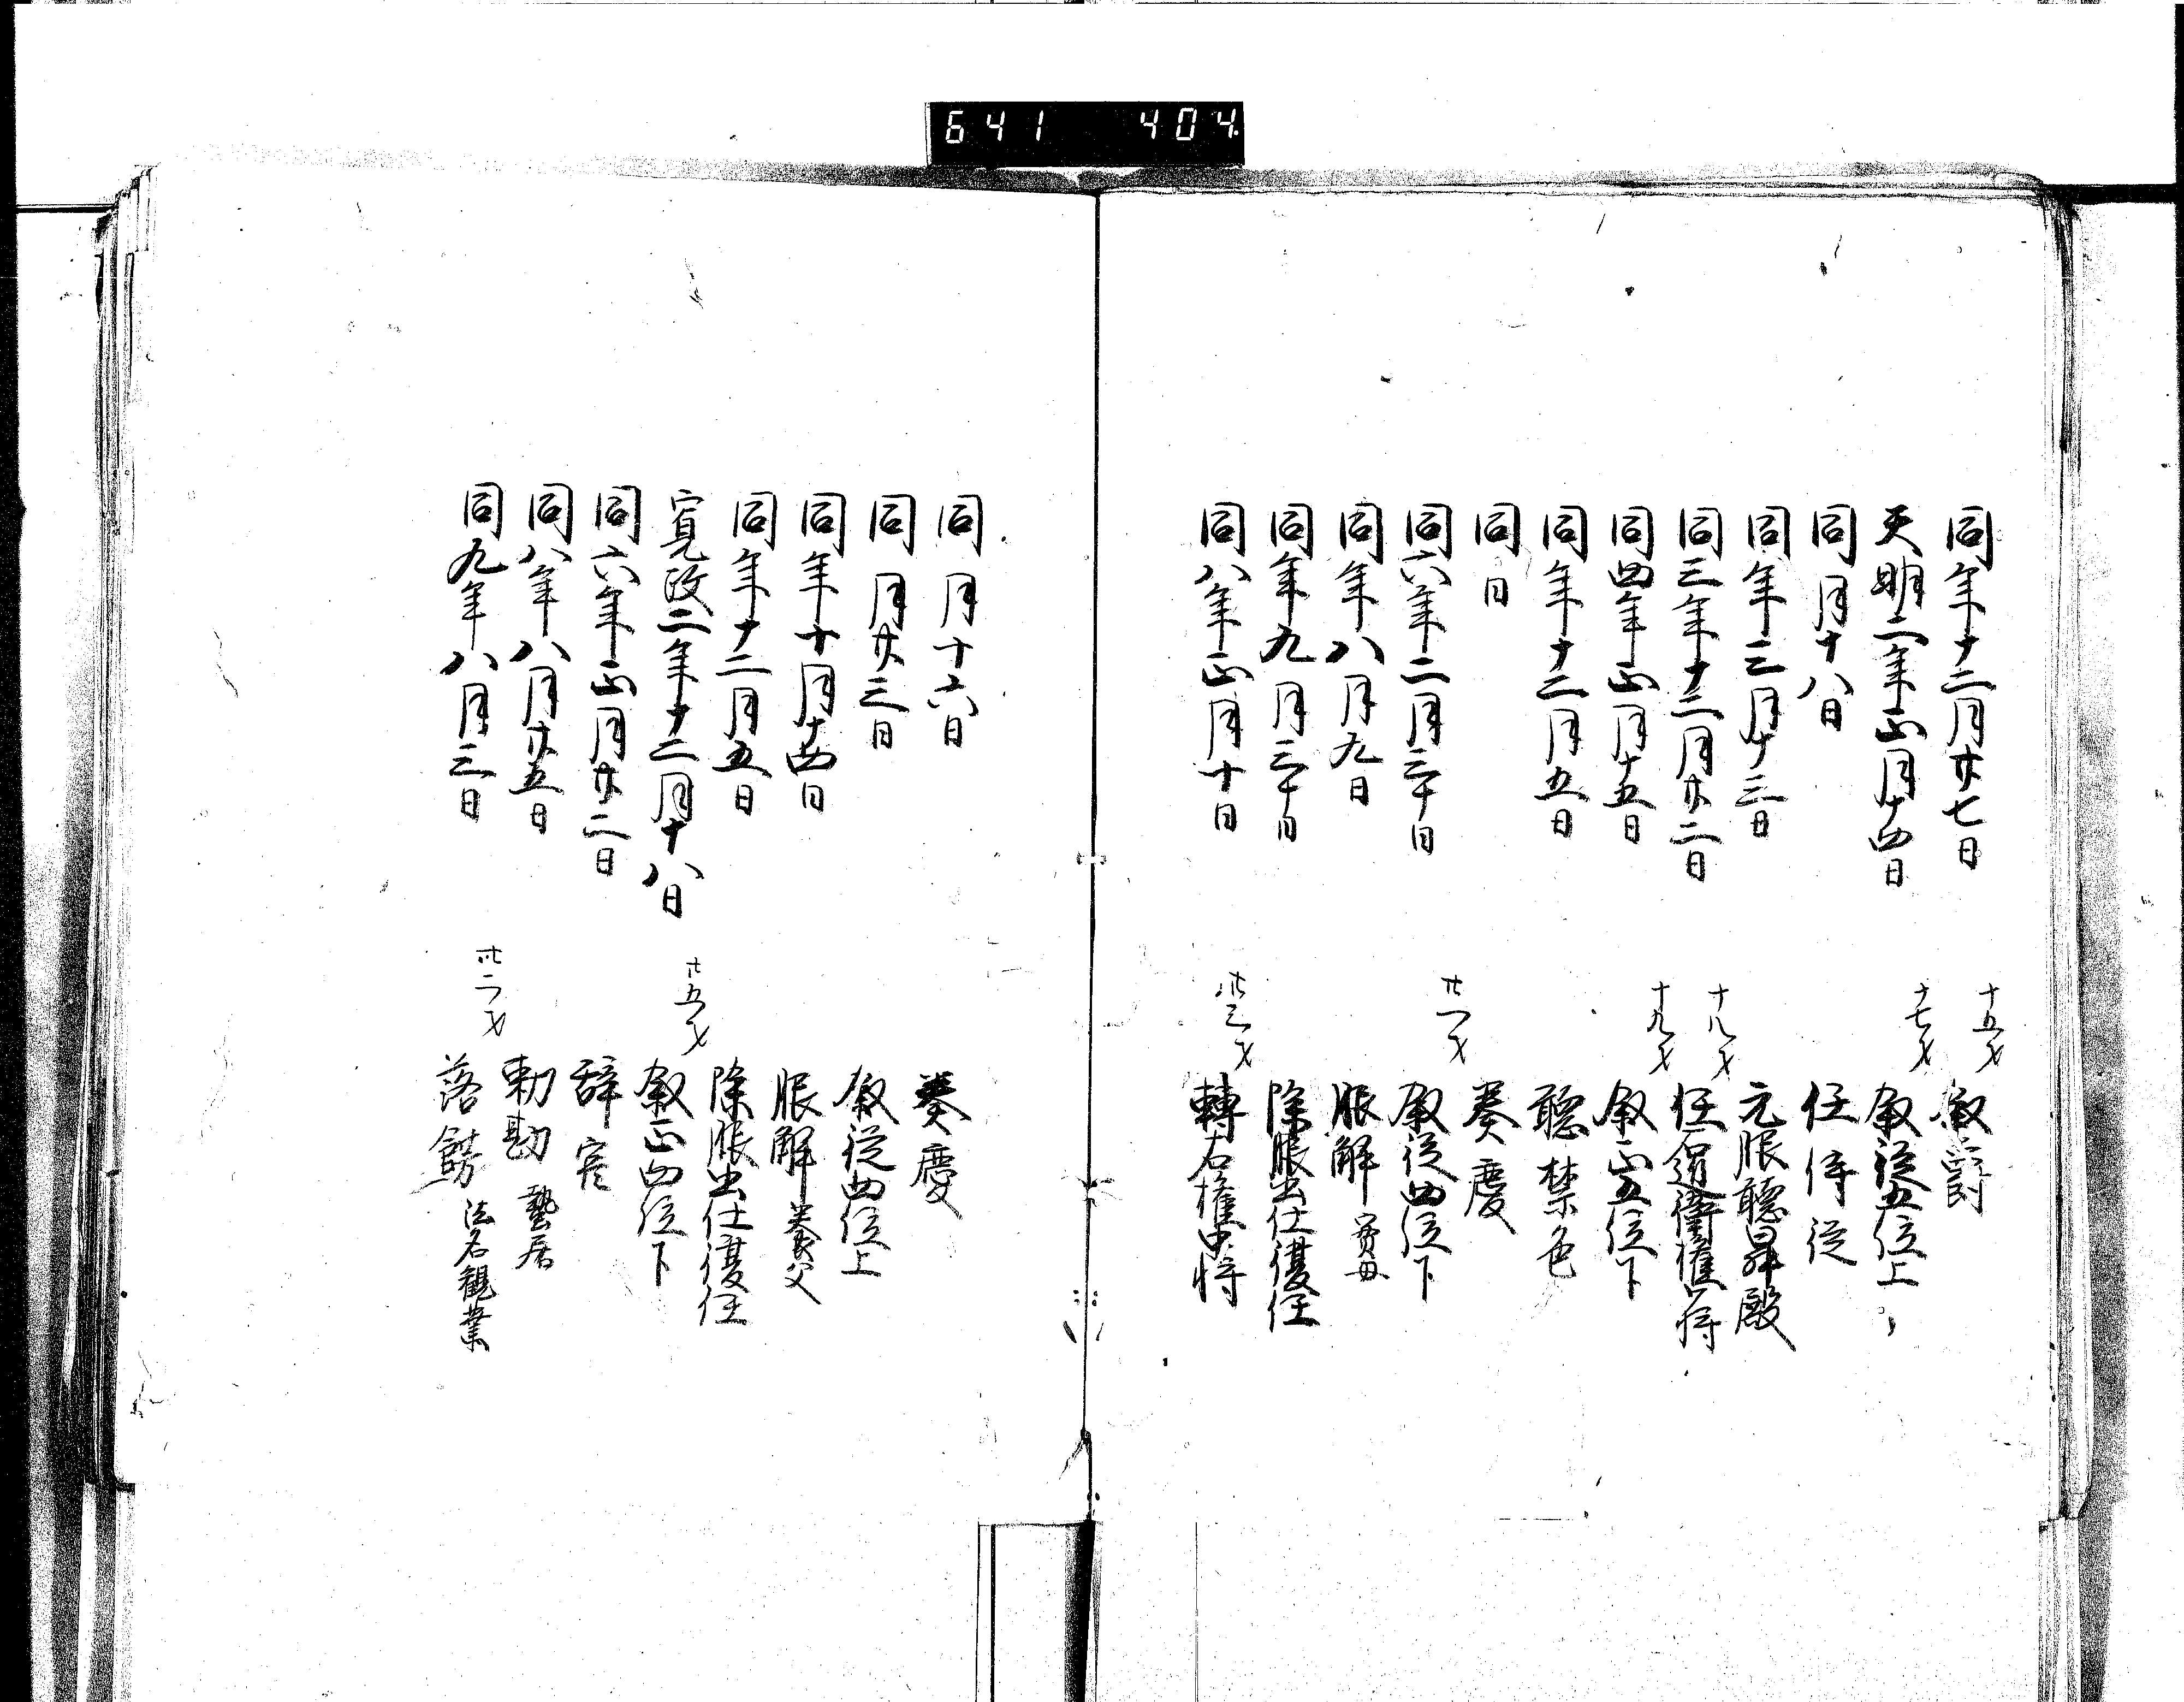 641 404
同年十二月廿七日 十五才 叙爵
天明二年正月十四日 十七才 叙従五位上
同月十八日 任侍従
同年三月十三日 元服聴昇殿
同三年十二月廿二日 十八才 任右近衛権少将
同四年正月十五日 十九才 叙正五位下
同年十二月五日 聴禁色
同日 奏慶
同六年二月三十日 廿一才 叙従四位下
同年八月九日 服解 実母
同年九月三十日 除服出仕復任
同八年正月十日 廿三才 轉右権中将
同月十六日 奏慶
同月廿三日 叙従四位上
同年十月十四日 服解 養父
同年十二月五日 除服出仕復任
寛政二年十二月十八日 廿五才 叙正四位下
同六年正月廿二日 辞官
同八年八月廿五日 勅勘 蟄居
同九年八月三日 卅二才 落餝 法名観業